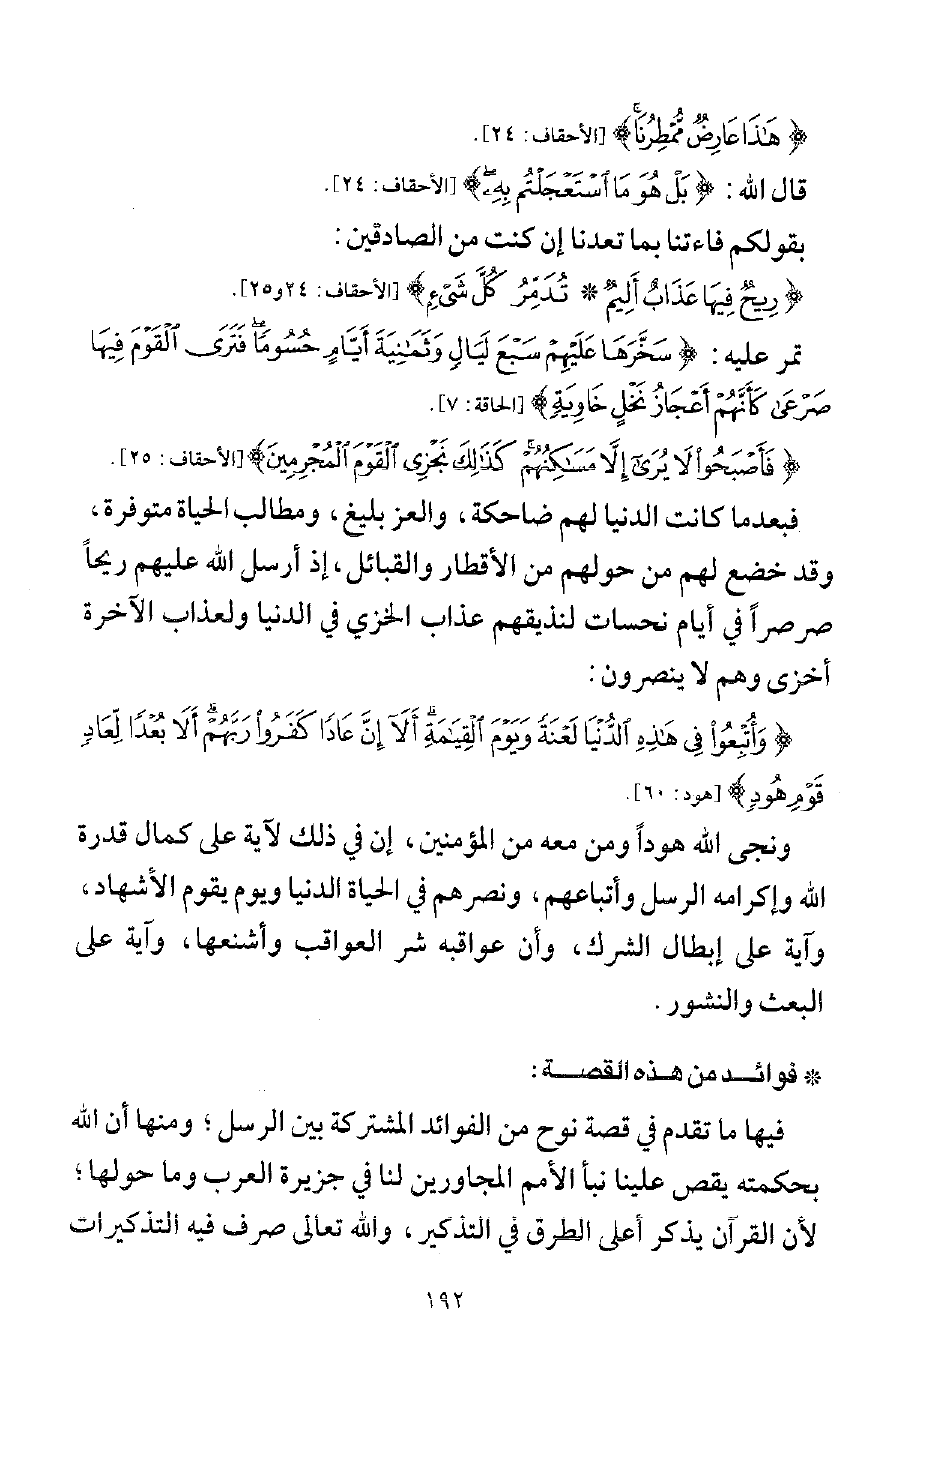 ﴿ هَٰذَا عَارِضٌ مُّمْطِرُنَاۚ﴾ [الأحقاف: ٢٤].
قال الله: ﴿ بَلْ هُوَ مَا ٱسْتَعْجَلْتُم بِهِۦۖ﴾ [الأحقاف: ٢٤].
بقولكم فاءتنا بما تعدنا إن كنت من الصادقين:
﴿ رِيحٌ فِيهَا عَذَابٌ أَلِيمٌ * تُدَمِّرُ كُلَّ شَىْءٍ﴾ [الأحقاف: ٢٤و٢٥].
تمر عليه: ﴿ سَخَّرَهَا عَلَيْهِمْ سَبْعَ لَيَالٍ وَثَمَٰنِيَةَ أَيَّامٍ حُسُومًاۖ فَتَرَى ٱلْقَوْمَ فِيهَا
صَرْعَىٰ كَأَنَّهُمْ أَعْجَازُ نَخْلٍ خَاوِيَةٍ﴾ [الحاقة: ٧].
﴿ فَأَصْبَحُوا۟ لَا يُرَىٰٓ إِلَّا مَسَٰكِنُهُمْۚ كَذَٰلِكَ نَجْزِى ٱلْقَوْمَ ٱلْمُجْرِمِينَ﴾ [الأحقاف: ٢٥].
فبعدما كانت الدنيا لهم ضاحكة، والعز بليغ، ومطالب الحياة متوفرة،
وقد خضع لهم من حولهم من الأقطار والقبائل، إذ أرسل الله عليهم ريحاً
صرصراً في أيام نحسات لنذيقهم عذاب الخزي في الدنيا ولعذاب الآخرة
أخزى وهم لا ينصرون:
﴿ وَأُتْبِعُوا۟ فِى هَٰذِهِ ٱلدُّنْيَا لَعْنَةً وَيَوْمَ ٱلْقِيَٰمَةِۗ أَلَآ إِنَّ عَادًا كَفَرُوا۟ رَبَّهُمْۗ أَلَا بُعْدًا لِّعَادٍ
قَوْمِ هُودٍ﴾ [هود: ٦٠].
ونجى الله هوداً ومن معه من المؤمنين، إن في ذلك لآية على كمال قدرة
الله وإكرامه الرسل وأتباعهم، ونصرهم في الحياة الدنيا ويوم يقوم الأشهاد،
وآية على إبطال الشرك، وأن عواقبه شر العواقب وأشنعها، وآية على
البعث والنشور.
* فوائد من هذه القصة:
فيها ما تقدم في قصة نوح من الفوائد المشتركة بين الرسل؛ ومنها أن الله
بحكمته يقص علينا نبأ الأمم المجاورين لنا في جزيرة العرب وما حولها؛
لأن القرآن يذكر أعلى الطرق في التذكير، والله تعالى صرف فيه التذكيرات
١٩٢